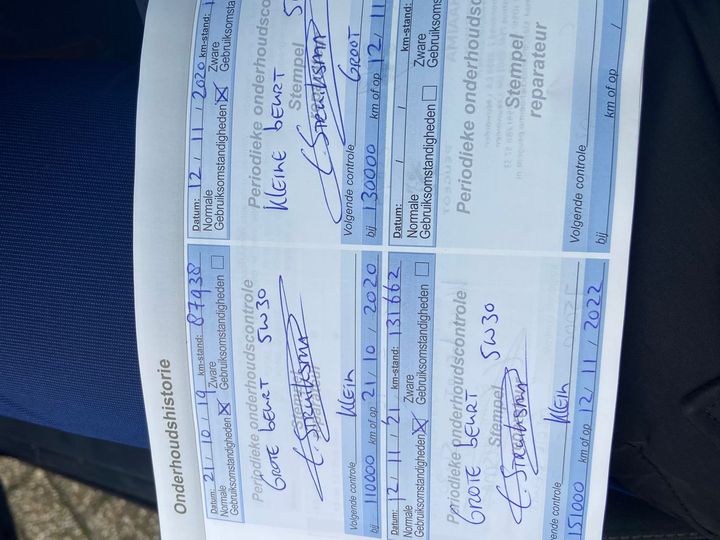 Onderhoudshistorie
Datum: 21 / 10 / 19 km-stand: 87938
Normale Gebruiksomstandigheden ☒ Zware Gebruiksomstandigheden ☐
Periodieke onderhoudscontrole
GROTE BEURT 5W30
Stempel
Volgende controle Klein
bij 110000 km of op 21 / 10 / 2020
Datum: 12 / 11 / 2020 km-stand:
Normale Gebruiksomstandigheden ☒ Zware Gebruiksomsta
Periodieke onderhoudsco
KleinE BEURT 5W
Stempel
Volgende controle GROOT
bij 130000 km of op 12 / 11
Datum: 12 / 11 / 21 km-stand: 131662
Normale Gebruiksomstandigheden ☒ Zware Gebruiksomstandigheden ☐
Periodieke onderhoudscontrole
GROTE BEURT 5W30
Stempel
ende controle Klein
151000 km of op 12 / 11 / 2022
Datum: / / km-stand:
Normale Gebruiksomstandigheden ☐ Zware Gebruiksomsta
Periodieke onderhoudsc
Stempel
reparateur
Volgende controle
bij km of op /